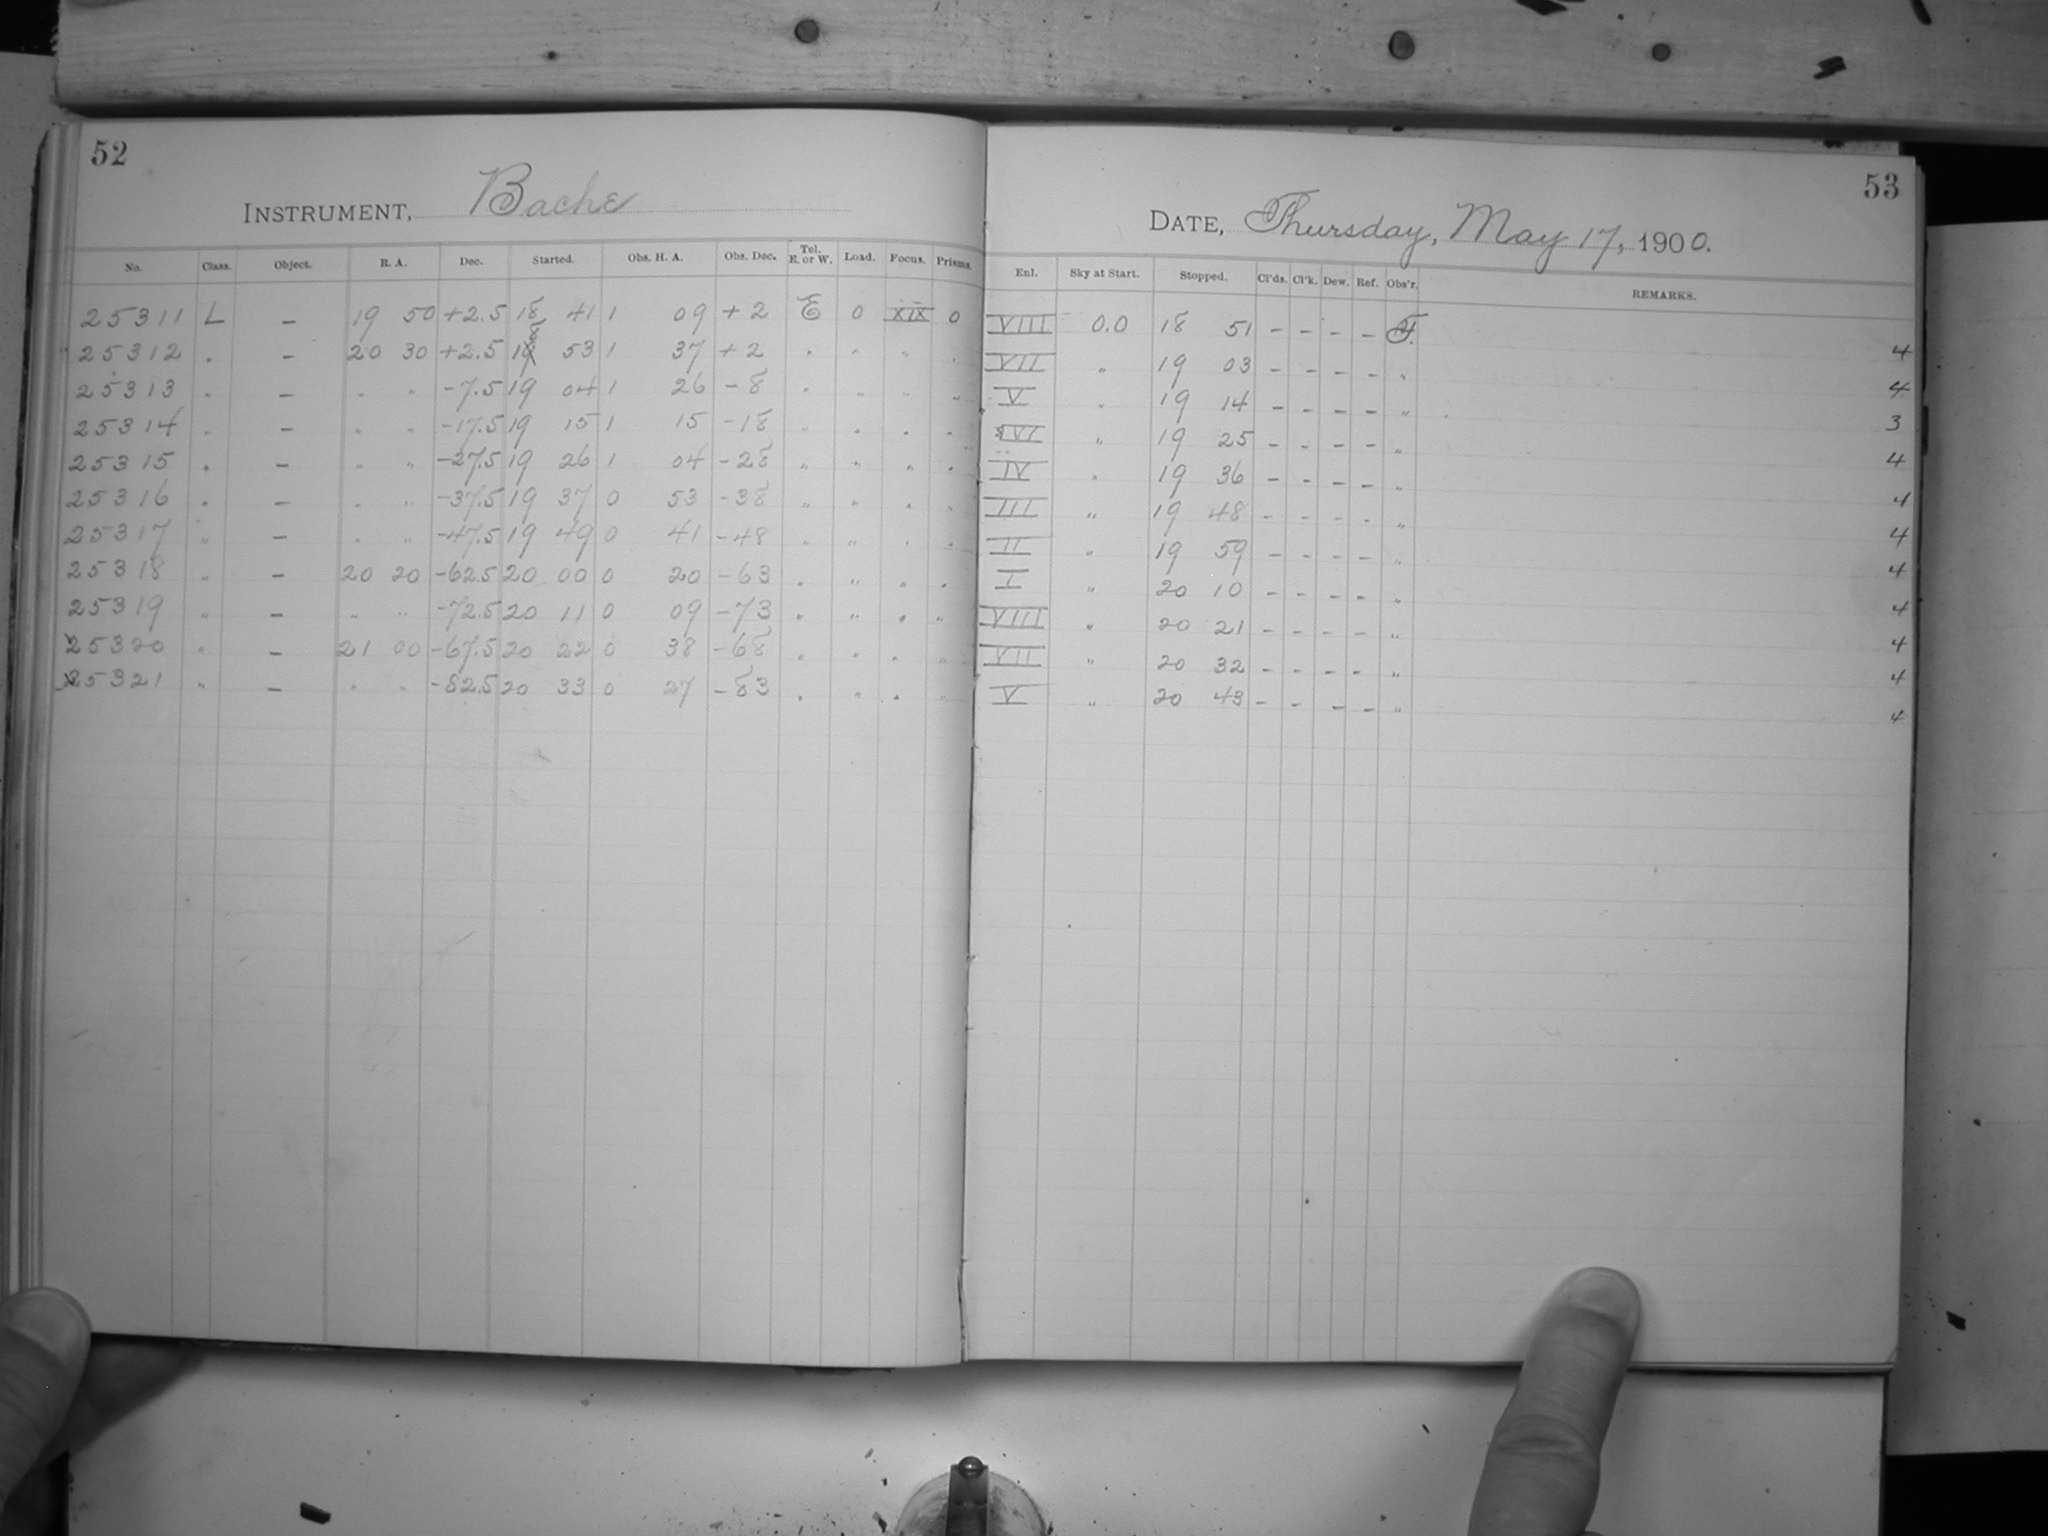 52
INSTRUMENT, Bache
No. Class. Object. R. A. Dec. Started. Obs. H. A. Obs. Dec. Tel. E. or W. Load. Focus. Prisms.
25311 L – 19 50 +2.5 18 41 1 09 +2 E 0 XIX 0
25312 " – 20 30 +2.5 18 53 1 37 +2 " " " "
25313 " – " " -7.5 19 04 1 26 -8 " " " "
25314 " – " " -17.5 19 15 1 15 -18 " " " "
25315 " – " " -27.5 19 26 1 04 -28 " " " "
25316 " – " " -37.5 19 37 0 53 -38 " " " "
25317 " – " " -47.5 19 49 0 41 -48 " " " "
25318 " – 20 20 -62.5 20 00 0 20 -63 " " " "
25319 " – " " -72.5 20 11 0 09 -73 " " " "
25320 " – 21 00 -67.5 20 22 0 38 -68 " " " "
25321 " – " " -82.5 20 33 0 27 -83 " " " "
53
DATE, Thursday, May 17, 1900.
Enl. Sky at Start. Stopped. Cl'ds. Cl'k. Dew. Ref. Obs'r. REMARKS.
VIII 0.0 18 51 – – – – F. 4
VII " 19 03 – – – – " 4
V " 19 14 – – – – " 3
VI " 19 25 – – – – " 4
IV " 19 36 – – – – " 4
III " 19 48 – – – – " 4
II " 19 59 – – – – " 4
I " 20 10 – – – – " 4
VIII " 20 21 – – – – " 4
VII " 20 32 – – – – " 4
V " 20 43 – – – – " 4